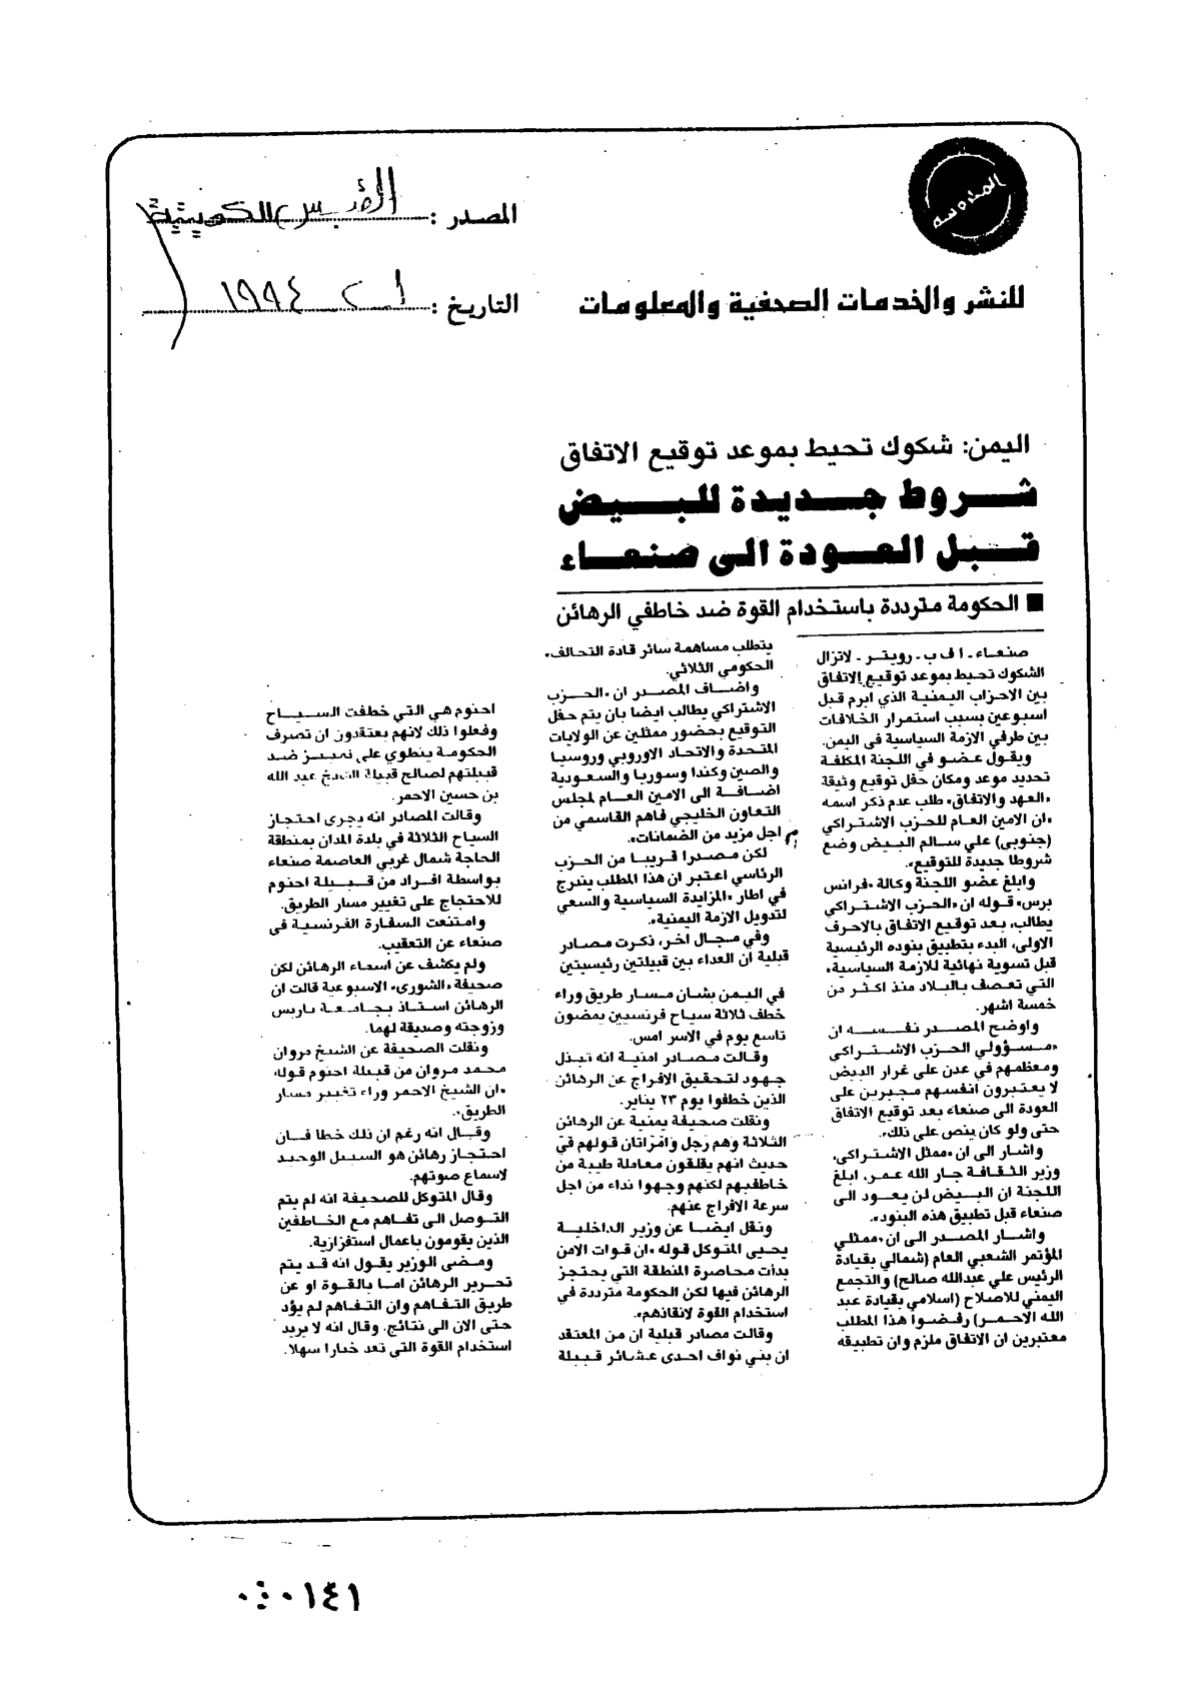 المدروسة
المصدر : القبس الكويتية
للنشر والخدمات الصحفية والمعلومات
التاريخ : ١٩٩٤
اليمن: شكوك تحيط بموعد توقيع الاتفاق
شروط جديدة للبيض
قبل العودة الى صنعاء
■ الحكومة مترددة باستخدام القوة ضد خاطفي الرهائن
صنعاء ـ ا ف ب ـ رويتر ـ لاتزال
الشكوك تحيط بموعد توقيع الاتفاق
بين الاحزاب اليمنية الذي ابرم قبل
اسبوعين بسبب استمرار الخلافات
بين طرفي الازمة السياسية في اليمن.
ويقول عضو في اللجنة المكلفة
تحديد موعد ومكان حفل توقيع وثيقة
«العهد والاتفاق» طلب عدم ذكر اسمه
«ان الامين العام للحزب الاشتراكي
(جنوبي) علي سالم البيض وضع
شروطا جديدة للتوقيع».
وابلغ عضو اللجنة وكالة «فرانس
برس» قوله ان «الحزب الاشتراكي
يطالب، بعد توقيع الاتفاق بالاحرف
الاولى، البدء بتطبيق بنوده الرئيسية
قبل تسوية نهائية للازمة السياسية»
التي تعصف بالبلاد منذ اكثر من
خمسة اشهر.
واوضح المصدر نفسه ان
«مسؤولي الحزب الاشتراكي
ومعظمهم في عدن على غرار البيض
لا يعتبرون انفسهم مجبرين على
العودة الى صنعاء بعد توقيع الاتفاق
حتى ولو كان ينص على ذلك».
واشار الى ان «ممثل الاشتراكي،
وزير الثقافة جار الله عمر، ابلغ
اللجنة ان البيض لن يعود الى
صنعاء قبل تطبيق هذه البنود».
واشار المصدر الى ان «ممثلي
المؤتمر الشعبي العام (شمالي بقيادة
الرئيس علي عبدالله صالح) والتجمع
اليمني للاصلاح (اسلامي بقيادة عبد
الله الاحمر) رفضوا هذا المطلب
معتبرين ان الاتفاق ملزم وان تطبيقه
يتطلب مساهمة سائر قادة التحالف»
الحكومي الثلاثي.
واضاف المصدر ان «الحزب
الاشتراكي يطالب ايضا بان يتم حفل
التوقيع بحضور ممثلين عن الولايات
المتحدة والاتحاد الاوروبي وروسيا
والصين وكندا وسوريا والسعودية
اضافة الى الامين العام لمجلس
التعاون الخليجي فاهم القاسمي من
اجل مزيد من الضمانات».
لكن مصدرا قريبا من الحزب
الرئاسي اعتبر ان هذا المطلب يندرج
في اطار «المزايدة السياسية والسعي
لتدويل الازمة اليمنية».
وفي مجال اخر، ذكرت مصادر
قبلية ان العداء بين قبيلتين رئيسيتين
في اليمن بشأن مسار طريق وراء
خطف ثلاثة سياح فرنسيين يمضون
تاسع يوم في الاسر امس.
وقالت مصادر امنية انه تبذل
جهود لتحقيق الافراج عن الرهائن
الذين خطفوا يوم ٢٣ يناير.
ونقلت صحيفة يمنية عن الرهائن
الثلاثة وهم رجل وامرأتان قولهم في
حديث انهم يلقون معاملة طيبة من
خاطفيهم لكنهم وجهوا نداء من اجل
سرعة الافراج عنهم.
ونقل ايضا عن وزير الداخلية
يحيى المتوكل قوله «ان قوات الامن
بدأت محاصرة المنطقة التي يحتجز
الرهائن فيها لكن الحكومة مترددة في
استخدام القوة لانقاذهم».
وقالت مصادر قبلية ان من المعتقد
ان بني نواف احدى عشائر قبيلة
احنوم هي التي خطفت السياح
وفعلوا ذلك لانهم يعتقدون ان تصرف
الحكومة ينطوي على تمييز ضد
قبيلتهم لصالح قبيلة الشيخ عبد الله
بن حسين الاحمر.
وقالت المصادر انه يجرى احتجاز
السياح الثلاثة في بلدة المدان بمنطقة
الحاجة شمال غربي العاصمة صنعاء
بواسطة افراد من قبيلة احنوم
للاحتجاج على تغيير مسار الطريق.
وامتنعت السفارة الفرنسية في
صنعاء عن التعقيب.
ولم يكشف عن اسماء الرهائن لكن
صحيفة «الشورى» الاسبوعية قالت ان
الرهائن استاذ بجامعة باريس
وزوجته وصديقة لهما.
ونقلت الصحيفة عن الشيخ مروان
محمد مروان من قبيلة احنوم قوله
«ان الشيخ الاحمر وراء تغيير مسار
الطريق».
وقال انه رغم ان ذلك خطا فان
احتجاز رهائن هو السبيل الوحيد
لاسماع صوتهم.
وقال المتوكل للصحيفة انه لم يتم
التوصل الى تفاهم مع الخاطفين
الذين يقومون باعمال استفزازية.
ومضى الوزير يقول انه قد يتم
تحرير الرهائن اما بالقوة او عن
طريق التفاهم وان التفاهم لم يؤد
حتى الان الى نتائج. وقال انه لا يريد
استخدام القوة التي تعد خيارا سهلا.